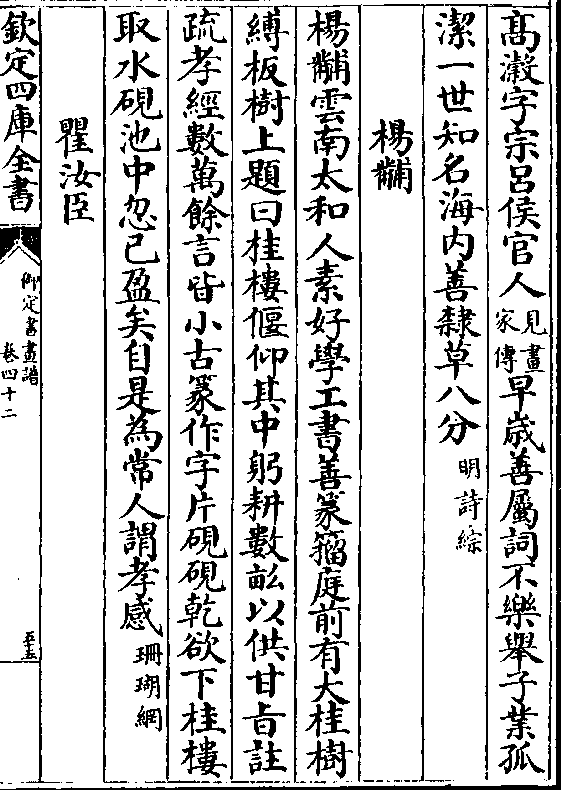 高瀔字宗呂侯官人見畫家傳早歳善屬詞不樂舉子業孤
潔一世知名海内善隸草八分明詩綜
楊黼
楊黼雲南太和人素好學工書善篆籀庭前有大桂樹
縛板樹上題曰桂樓偃仰其中躬耕數畝以供甘㫖註
疏孝經數萬餘言皆小古篆作字片硯硯乾欲下桂樓
取水硯池中忽已盈矣自是為常人謂孝感珊瑚網
瞿汝臣
欽定四庫全書
御定書畫譜
卷四十二
五十五